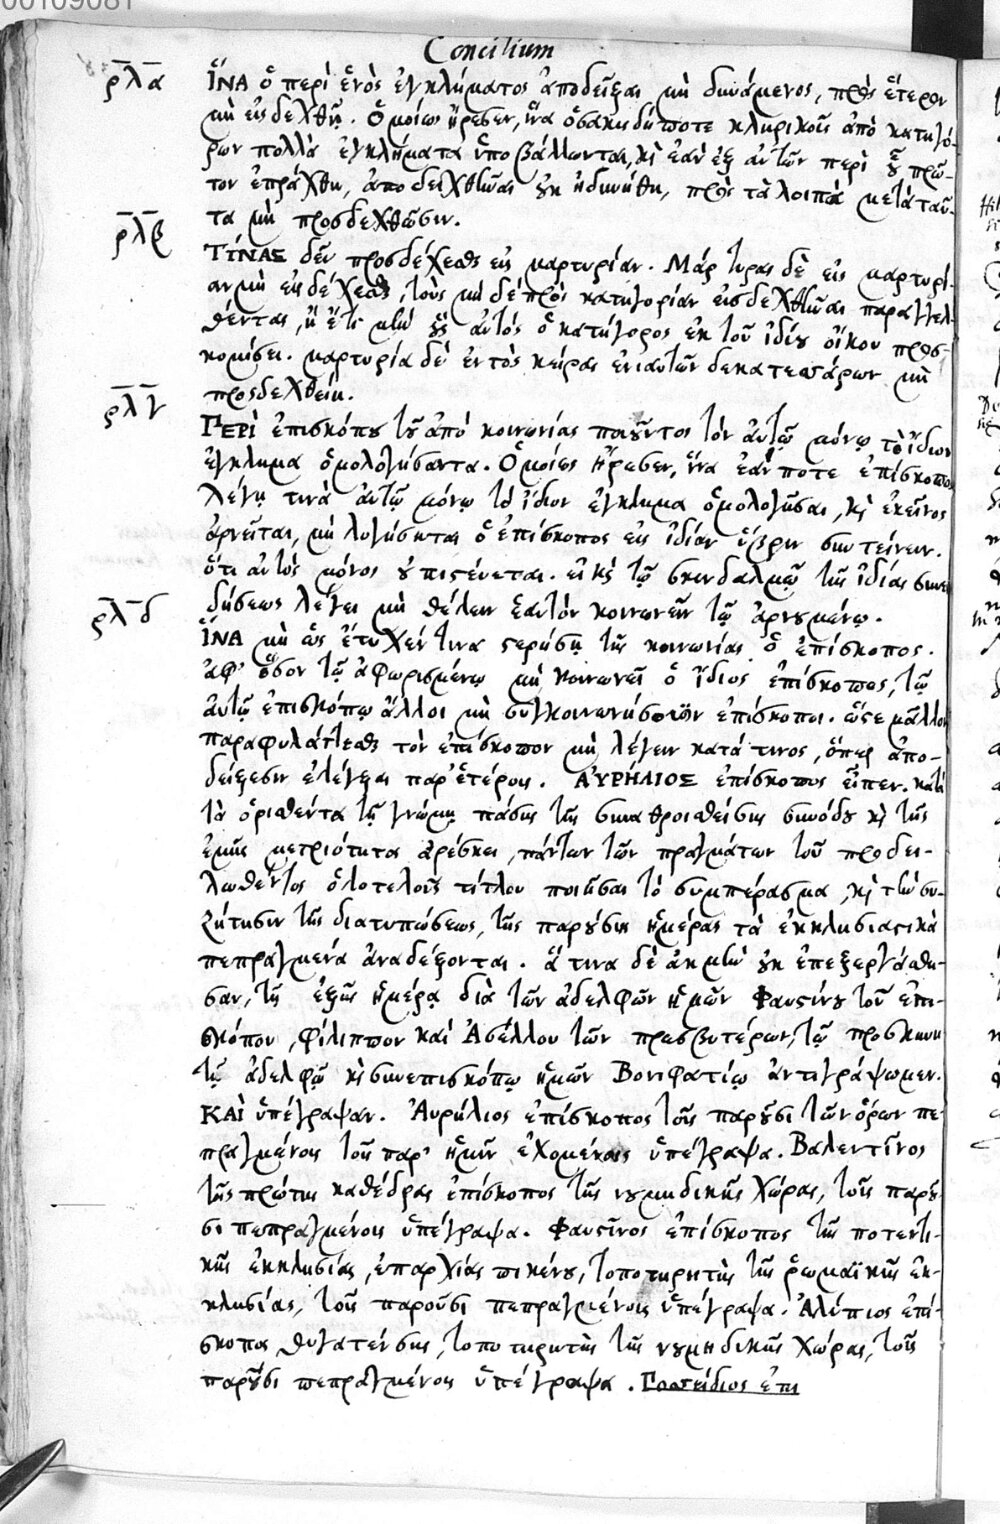 00109081
Concilium
ρλα ἽΝΑ ὁ περὶ ἑνὸς ἐγκλήματος ἀποδεῖξαι μὴ δυνάμενος, πρὸς ἕτερον
μὴ εἰσδεχθῇ. Ὁμοίως ἤρεσεν, ἵνα ὁσακισδήποτε κληρικοῖς ἀπὸ κατηγό-
ρων πολλὰ ἐγκλήματα ὑποβάλλωνται, κὶ ἐὰν ἐξ αὐτῶν περὶ οὗ πρῶ-
τον ἐπράχθη, ἀποδειχθῆναι οὐκ ἠδυνήθη, πρὸς τὰ λοιπὰ μετὰ ταῦ-
τα μὴ προσδεχθῶσιν.
ρλβ ΤΊΝΑΣ δεῖ προσδέχεσθαι εἰς μαρτυρίαν. Μάρτυρας δὲ εἰς μαρτυρί-
αν μὴ εἰσδέχεσθαι, τοὺς μηδὲ πρὸς κατηγορίαν εἰσδεχθῆναι παραγγελ-
θέντας, ἢ ἔτι μὴν οὓς αὐτὸς ὁ κατήγορος ἐκ τοῦ ἰδίου οἴκου προσ-
κομίσει. μαρτυρία δὲ ἐντὸς κείρας ἐνιαυτῶν δεκατεσσάρων μὴ
προσδεχθείη.
ρλγ ΠΕΡῚ ἐπισκόπου τοῦ ἀπὸ κοινωνίας ποιοῦντος τὸν αὐτῷ μόνῳ τὸ ἴδιον
ἔγκλημα ὁμολογήσαντα. Ὁμοίως ἤρεσεν, ἵνα ἐάν ποτε ἐπίσκοπος
λέγῃ τινὰ αὐτῷ μόνῳ τὸ ἴδιον ἔγκλημα ὁμολογῆσαι, κὶ ἐκεῖνος
ἀρνεῖται, μὴ λογήσηται ὁ ἐπίσκοπος εἰς ἰδίαν ὕβριν συντείνειν.
ὅτι αὐτὸς μόνος οὐ πιστεύεται. εἰ κὶ τῷ σκινδαλμῷ τῆς ἰδίας συνει
δήσεως λέγει μὴ θέλειν ἑαυτὸν κοινωνεῖν τῷ ἀρνουμένῳ.
ρλδ ἽΝΑ μὴ ὡς ἔτυχέν τινα στερήσῃ τῆς κοινωνίας ὁ ἐπίσκοπος.
ἀφ' ὅσον τῷ ἀφωρισμένῳ μὴ κοινωνεῖ ὁ ἴδιος ἐπίσκοπος, τῷ
αὐτῷ ἐπισκόπῳ ἄλλοι μὴ συγκοινωνήσωσιν ἐπίσκοποι. ὥστε μᾶλλον
παραφυλάττεσθαι τὸν ἐπίσκοπον μὴ λέγειν κατά τινος, ὅπερ ἀπο-
δείξεσιν ἐλέγξαι παρ' ἑτέροις. ΑΥΡΉΛΙΟΣ ἐπίσκοπος εἶπεν. κατὰ
τὰ ὁρισθέντα τῇ γνώμῃ πάσης τῆς συναθροισθείσης συνόδου κὶ τῆς
ἐμῆς μετριότητα ἀρέσκει, πάντων τῶν πραγμάτων τοῦ προδει-
λωθέντος ὁλοτελοῦς τίτλου ποιῆσαι τὸ συμπέρασμα, κὶ τὴν συ-
ζήτησιν τῆς διατυπώσεως, τῆς παρούσης ἡμέρας τὰ ἐκκλησιαστικὰ
πεπραγμένα ἀναδέξονται. ἅ τινα δὲ ἀκμὴν οὐκ ἐπεξεργάσθη-
σαν, τῇ ἑξῆς ἡμέρᾳ διὰ τῶν ἀδελφῶν ἡμῶν Φαυστίνου τοῦ ἐπι-
σκόπου, Φίλιππου καὶ Ἀσέλλου τῶν πρεσβυτέρων, τῷ προσκυνη
τῷ ἀδελφῷ κὶ συνεπισκόπῳ ἡμῶν Βονιφατίῳ ἀντιγράψωμεν.
ΚΑῚ ὑπέγραψαν. Αὐρήλιος ἐπίσκοπος τοῖς παροῦσι τῶν ὅρων πε-
πραγμένοις τοῖς παρ' ἡμῖν ἐχομένοις ὑπέγραψα. Βαλεντῖνος
τῆς πρώτης καθέδρας ἐπίσκοπος τῆς νουμιδικῆς χώρας, τοῖς παροῦ
σι πεπραγμένοις ὑπέγραψα. Φαυστῖνος ἐπίσκοπος τῆς ποτεντι-
κῆς ἐκκλησίας, ἐπαρχίας πικένου, τοποτηρητὴς τῆς ῥωμαϊκῆς ἐκ-
κλησίας, τοῖς παροῦσι πεπραγμένοις ὑπέγραψα. Ἀλύπιος ἐπί-
σκοπος θυγατένσης, τοποτηρητὴς τῆς νουμηδικῆς χώρας, τοῖς
παροῦσι πεπραγμένοις ὑπέγραψα. Ποσσίδιος ἐπι